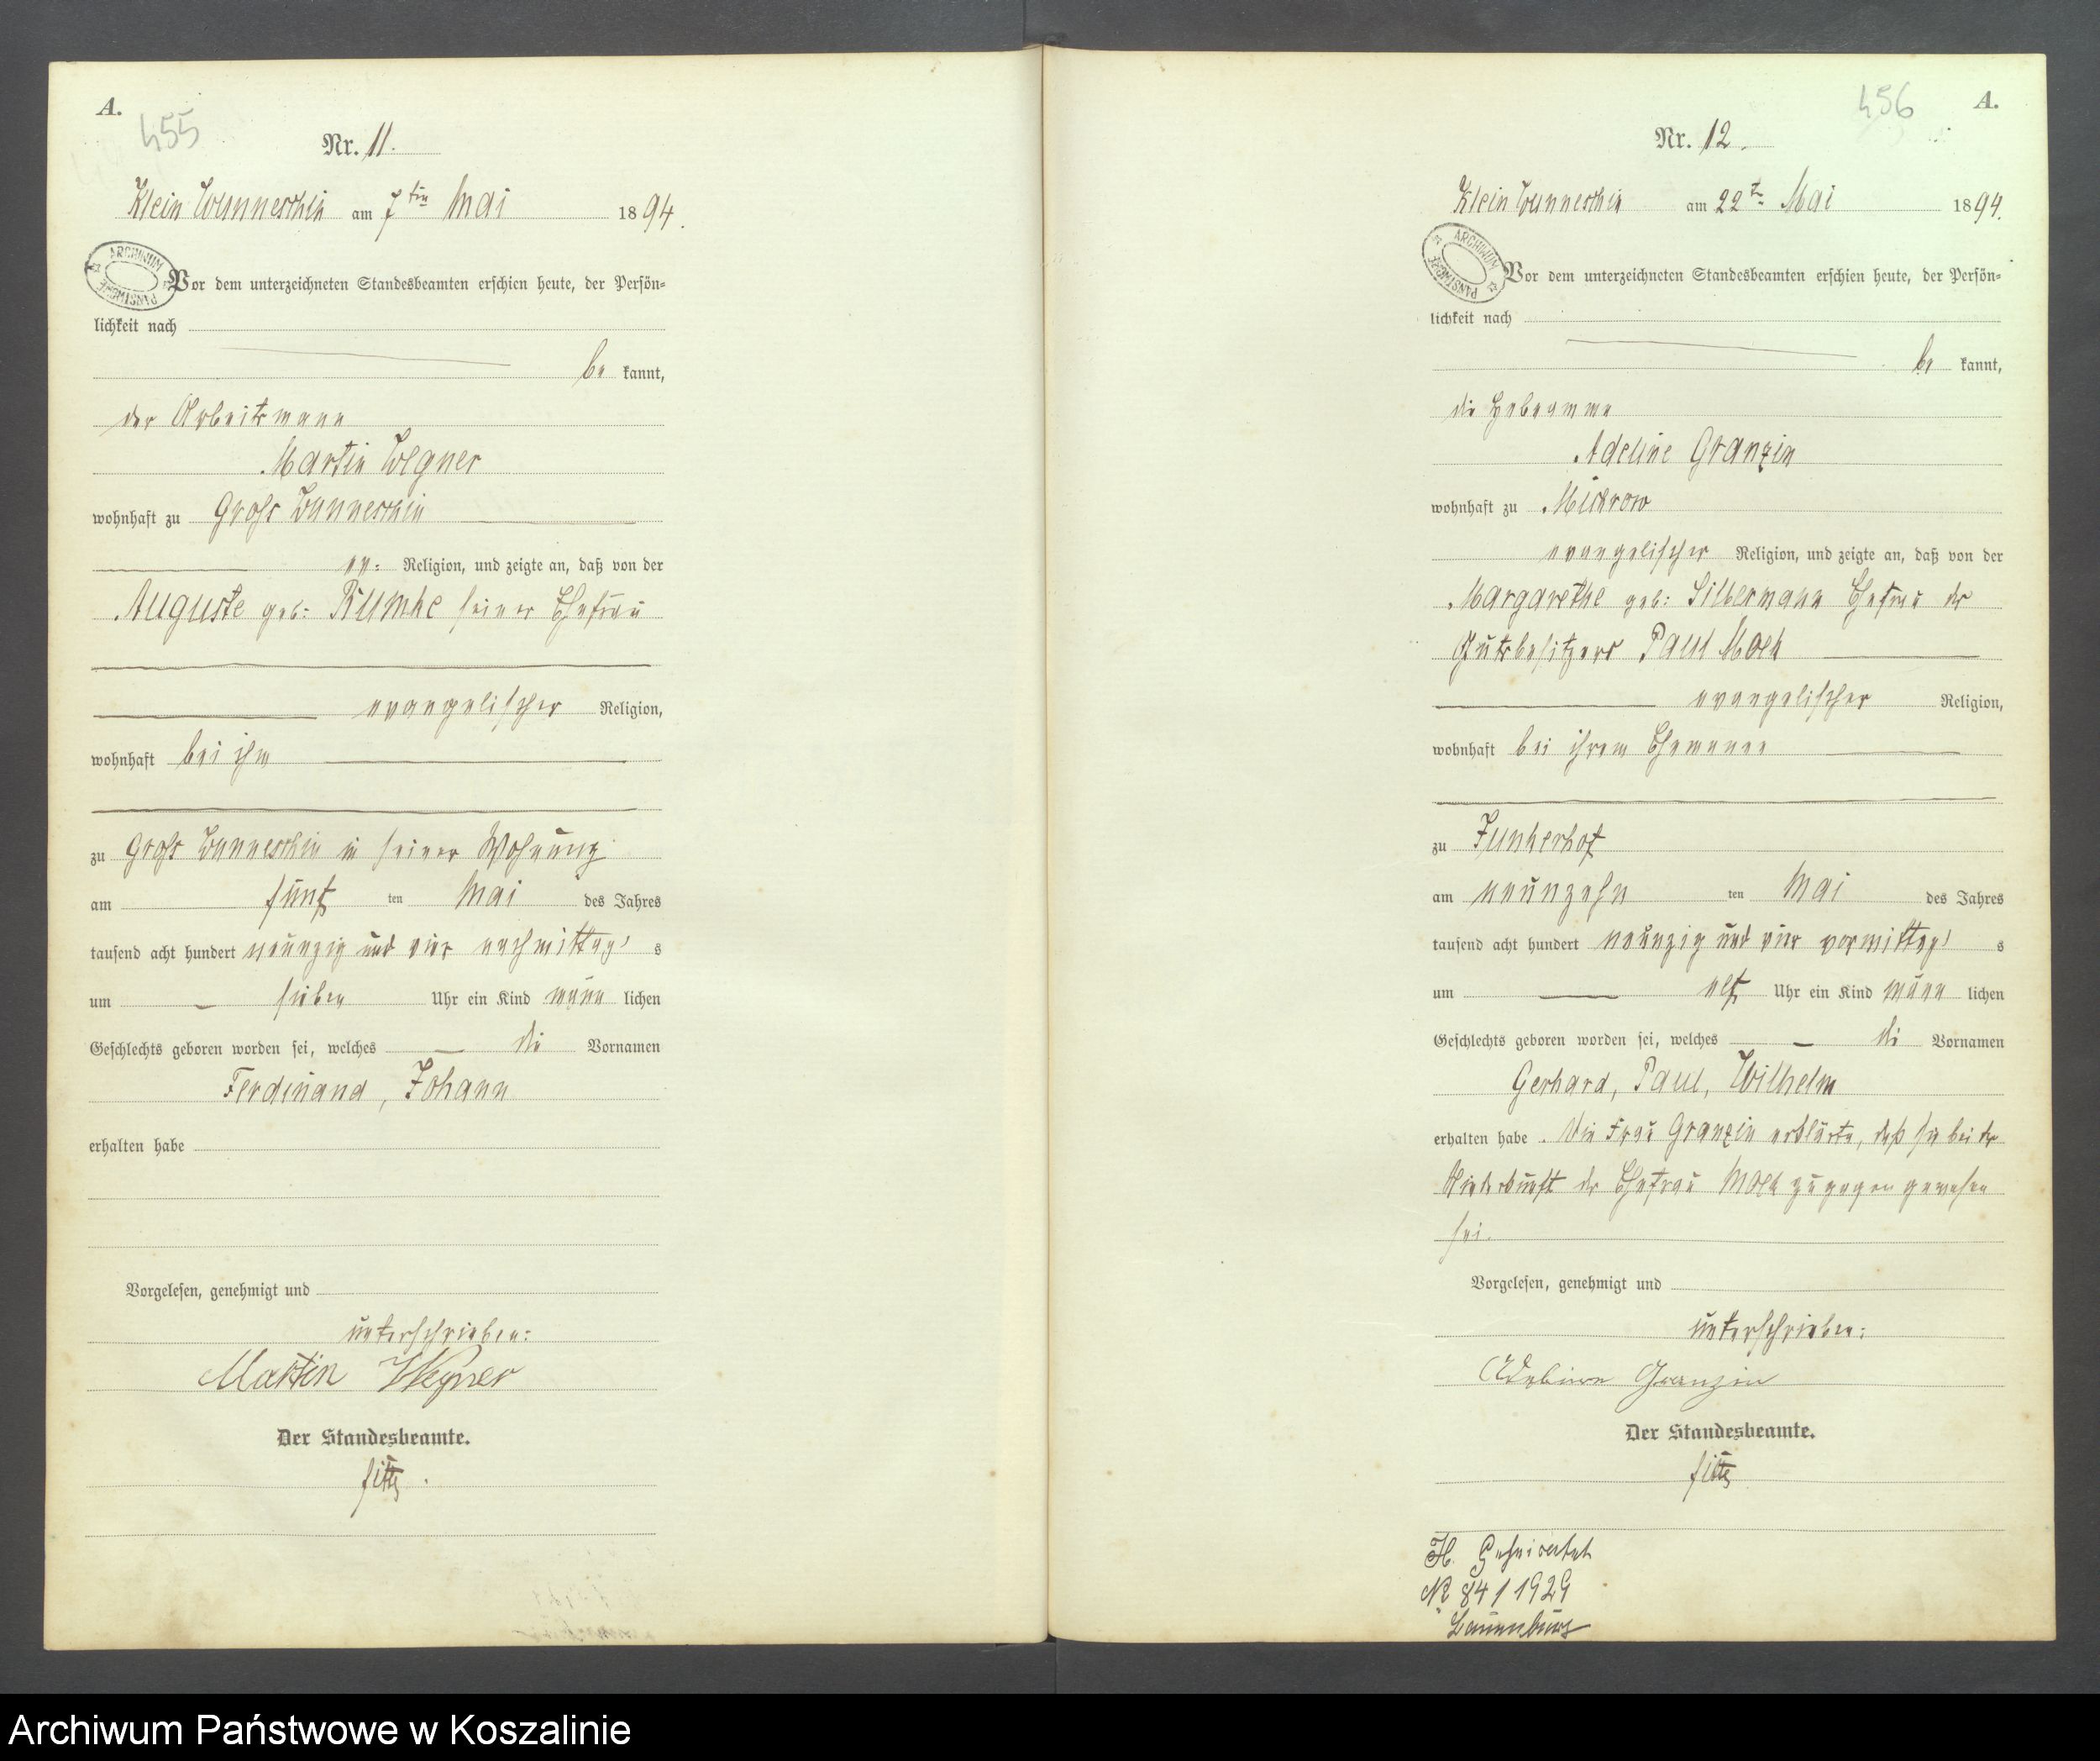 A.
455
Nr. 11.
Klein Wunneschin am 7ten Mai 1894.
ARCHIWUM PAŃSTWOWE
Vor dem unterzeichneten Standesbeamten erschien heute, der Persön-
lichkeit nach
be kannt,
der Arbeitsmann
Martin Wegner
wohnhaft zu Gross Wunneschin
ev: Religion, und zeigte an, daß von der
Auguste geb: Rumke seiner Ehefrau
evangelischer Religion,
wohnhaft bei ihm
zu Gross Wunneschin in seiner Wohnung
am fünf ten Mai des Jahres
tausend acht hundert neunzig und vier nachmittag s
um sieben Uhr ein Kind männ lichen
Geschlechts geboren worden sei, welches die Vornamen
Ferdinand, Johann
erhalten habe
Vorgelesen, genehmigt und
unterschrieben:
Martin Wegner
Der Standesbeamte.
456
A.
Nr. 12.
Klein Wunneschin am 22t Mai 1894.
ARCHIWUM PAŃSTWOWE
Vor dem unterzeichneten Standesbeamten erschien heute, der Persön-
lichkeit nach
be kannt,
die Hebeamme
Adeline Granzin
wohnhaft zu Mickrow
evangelischer Religion, und zeigte an, daß von der
Margarethe geb: Silbermann Ehefrau des
Gutsbesitzers Paul Mach
evangelischer Religion,
wohnhaft bei ihrem Ehemanne
zu Junkerhof
am neunzehn ten Mai des Jahres
tausend acht hundert neunzig und vier vormittag s
um elf Uhr ein Kind männ lichen
Geschlechts geboren worden sei, welches die Vornamen
Gerhard, Paul, Wilhelm
erhalten habe. Die Frau Granzin erklärte, daß sie bei der
Niederkunft der Ehefrau Mach zugegen gewesen
sei.
Vorgelesen, genehmigt und
unterschrieben:
Adeline Granzin
Der Standesbeamte.
H.
№ 84/1929
Lauenburg
Archiwum Państwowe w Koszalinie